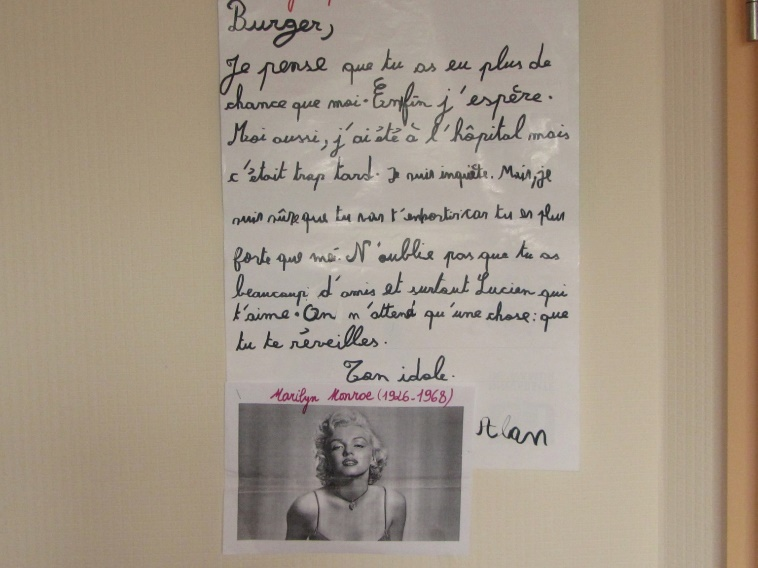 Burger,
Je pense que tu as eu plus de
chance que moi. Enfin j'espére.
Moi aussi, j'ai été à l'hôpital mais
c'était trop tard. Je suis inquiète. Mais, je
suis sûre que tu vas t'en sortir car tu es plus
forte que moi. N'oublie pas que tu as
beaucoup d'amis et surtout Lucien qui
t'aime. On n'attend qu'une chose : que
tu te réveilles.
Ton idole.
Marilyn Monroe (1926-1968)
Alan